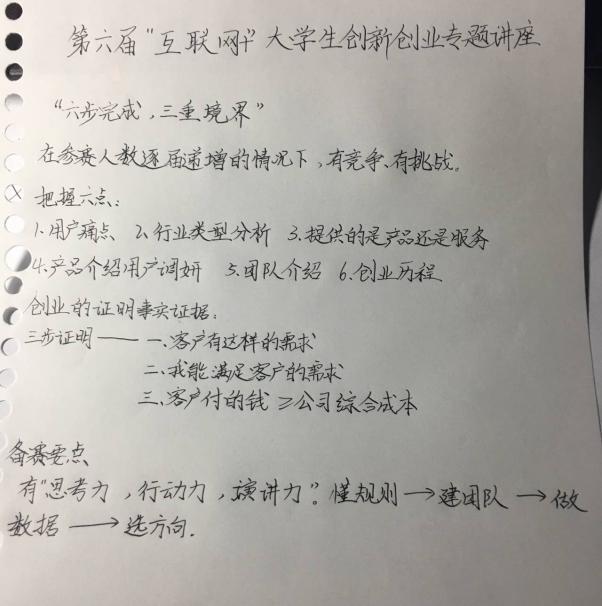 第六届"互联网+"大学生创新创业专题讲座
"六步完成,三重境界"
在参赛人数逐届递增的情况下,有竞争、有挑战。
把握六点:
1.用户痛点 2.行业类型分析 3.提供的是产品还是服务
4.产品介绍用户调妍 5.团队介绍 6.创业历程
创业的证明事实证据:
三步证明—— 一、客户有这样的需求
二、我能满足客户的需求
三、客户付的钱≥公司综合成本
备赛要点
有"思考力,行动力,演讲力"。懂规则→建团队→做
数据→选方向.